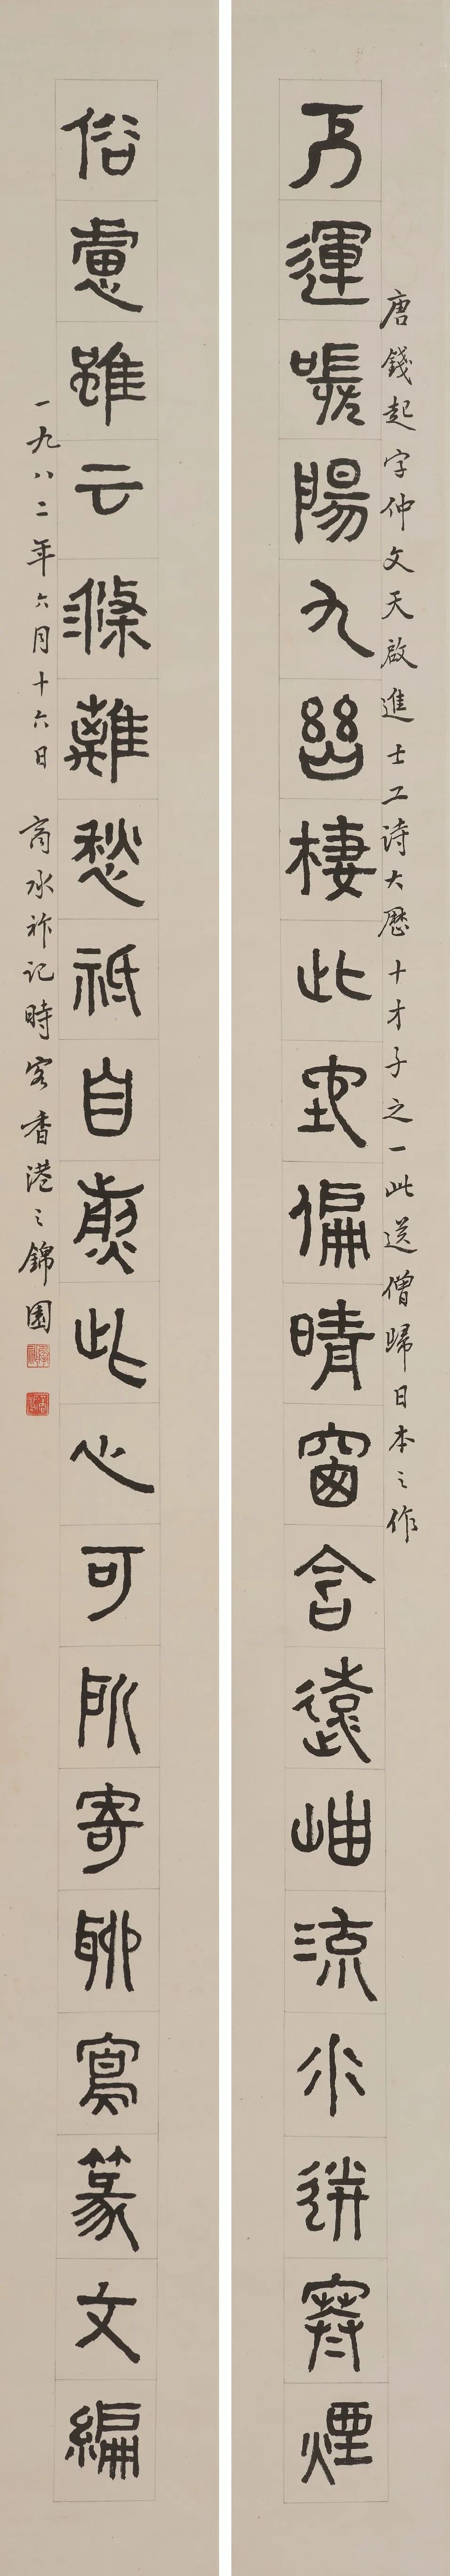 唐錢起字仲文天啟進士工詩大歷十才子之一此送僧歸日本之作
厄運嗟陽九幽棲此地偏晴窗含遠岫流水迸寒煙
俗慮雖云滌離愁祇自煎此心可所寄聊寫篆文編
一九八二年六月十六日 商承祚記時客香港之錦園